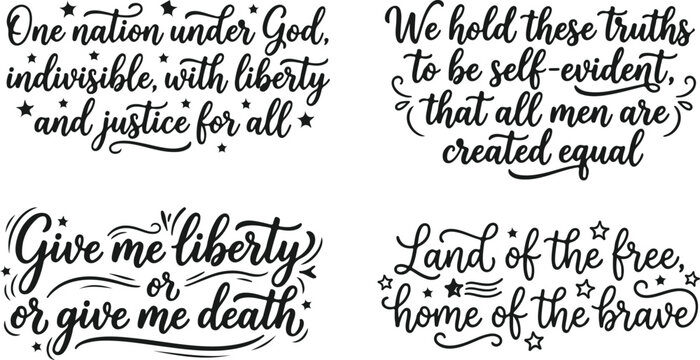 One nation under God,
indivisible, with liberty
and justice for all
We hold these truths
to be self-evident,
that all men are
created equal
Give me liberty
or
or give me death
Land of the free,
home of the brave